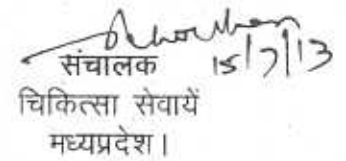 संचालक 15/7/13
चिकित्सा सेवायें
मध्यप्रदेश।